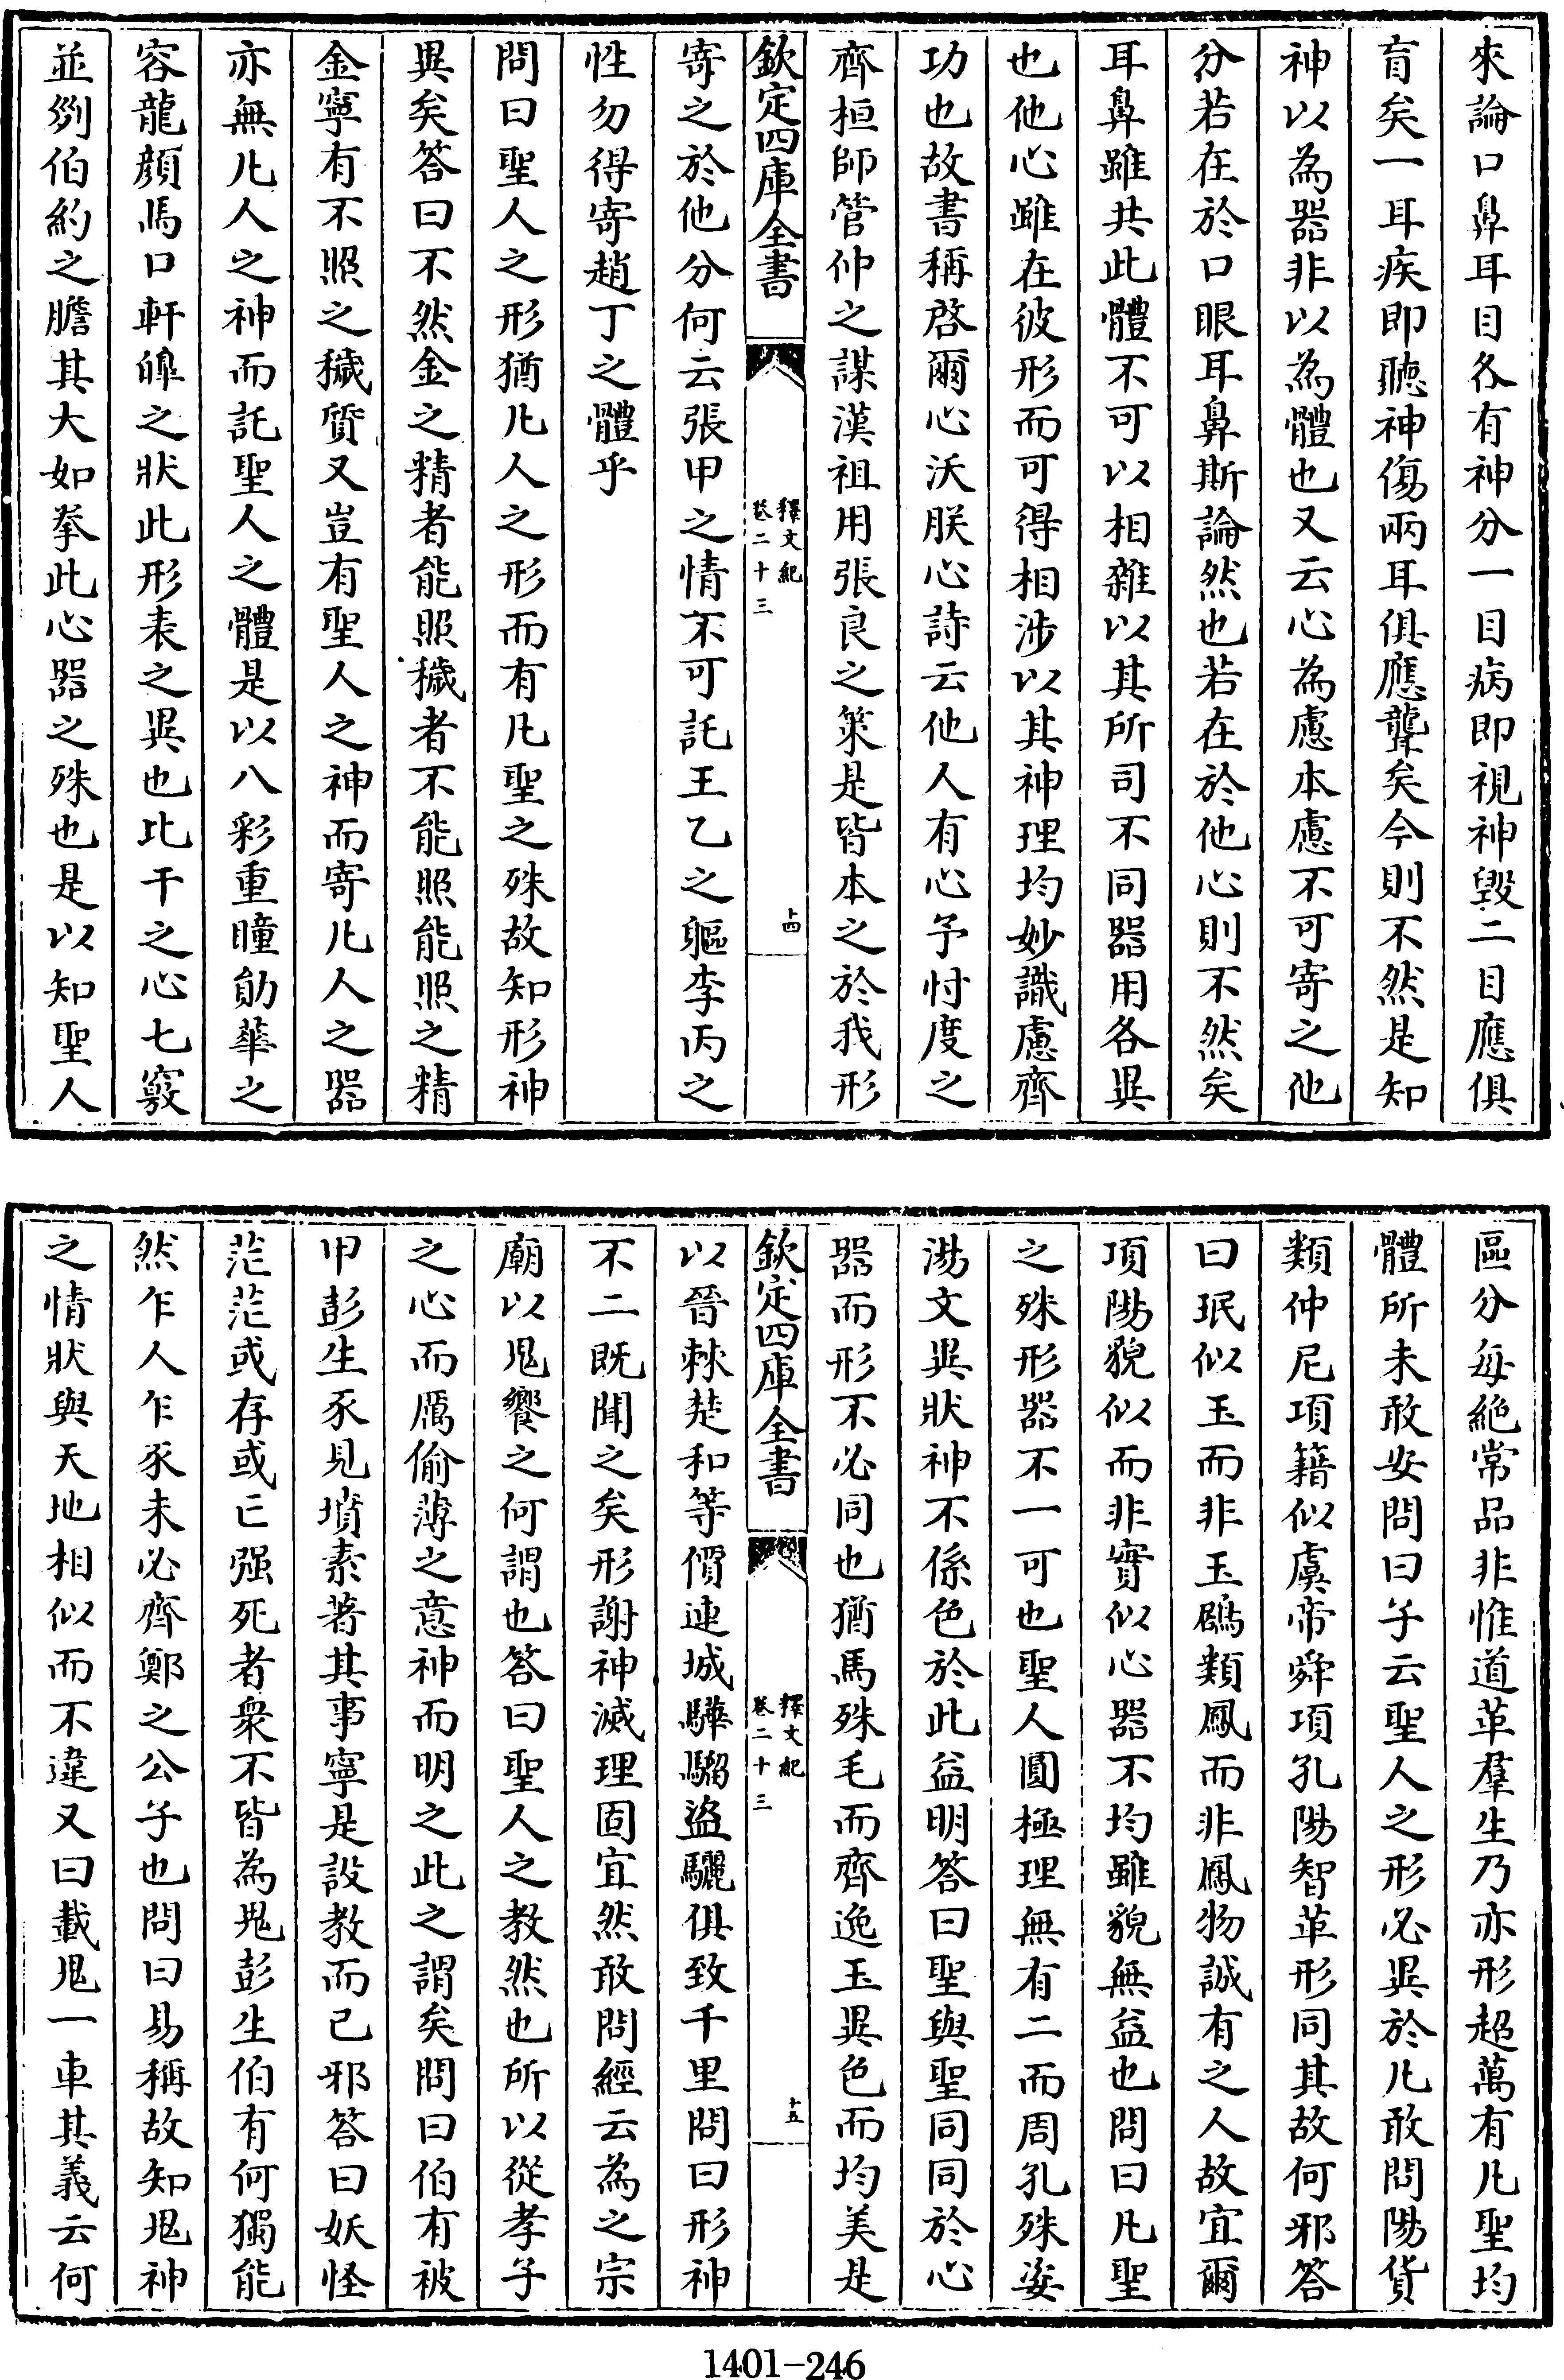 來論口鼻耳目各有神分一目病即視神毀二目應俱
盲矣一耳疾即聽神傷兩耳俱應聾矣今則不然是知
神以為器非以為體也又云心為慮本慮不可寄之他
分若在於口眼耳鼻斯論然也若在於他心則不然矣
耳鼻雖共此體不可以相雜以其所司不同器用各異
也他心雖在彼形而可得相涉以其神理均妙識慮齊
功也故書稱啓爾心沃朕心詩云他人有心予忖度之
齊桓師管仲之謀漢祖用張良之策是皆本之於我形
欽定四庫全書
釋文紀
卷二十三
十四
寄之於他分何云張甲之情不可託王乙之軀李丙之
性勿得寄趙丁之體乎
問曰聖人之形猶凡人之形而有凡聖之殊故知形神
異矣答曰不然金之精者能照穢者不能照能照之精
金寧有不照之穢質又豈有聖人之神而寄凡人之器
亦無凡人之神而託聖人之體是以八彩重瞳勛華之
容龍顔馬口軒皥之狀此形表之異也比干之心七竅
並列伯約之膽其大如拳此心器之殊也是以知聖人
區分每絶常品非惟道革羣生乃亦形超萬有凡聖均
體所未敢安問曰子云聖人之形必異於凡敢問陽貨
類仲尼項籍似虞帝舜項孔陽智革形同其故何邪答
曰珉似玉而非玉鶋類鳳而非鳳物誠有之人故宜爾
項陽貌似而非實似心器不均雖貌無益也問曰凡聖
之殊形器不一可也聖人圓極理無有二而周孔殊姿
湯文異狀神不係色於此益明答曰聖與聖同同於心
器而形不必同也猶馬殊毛而齊逸玉異色而均美是
欽定四庫全書
釋文紀
卷二十三
十五
以晉棘楚和等價連城驊騮盜驪俱致千里問曰形神
不二既聞之矣形謝神滅理固宜然敢問經云為之宗
廟以鬼饗之何謂也答曰聖人之教然也所以從孝子
之心而厲偷薄之意神而明之此之謂矣問曰伯有被
甲彭生豕見墳素著其事寧是設教而已邪答曰妖怪
茫茫或存或亡强死者衆不皆為鬼彭生伯有何獨能
然乍人乍豕未必齊鄭之公子也問曰易稱故知鬼神
之情狀與天地相似而不違又曰載鬼一車其義云何
1401-246